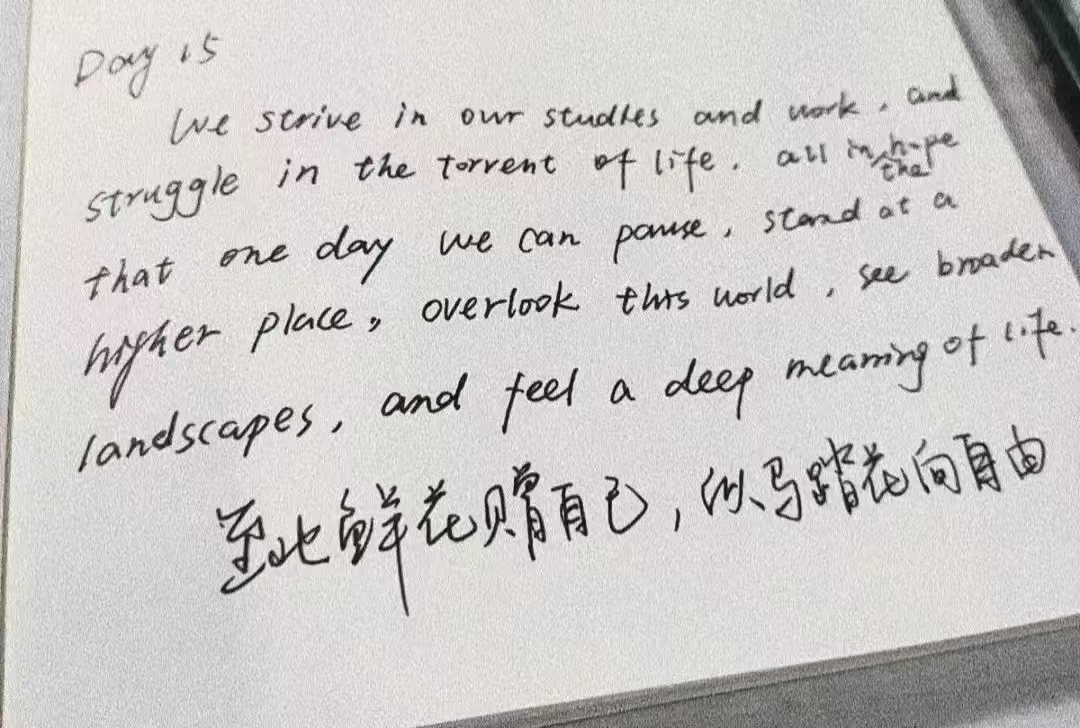 Day 15
We strive in our studies and work, and
struggle in the torrent of life. all in the hope
that one day we can pause, stand at a
higher place, overlook this world, see broader
landscapes, and feel a deep meaning of life.
至此鲜花赠自己，似马踏花向自由